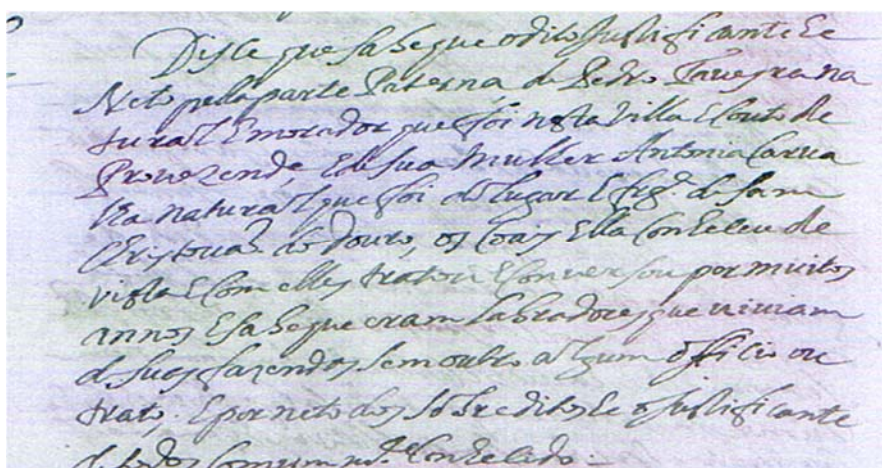 Disse que sabe que o dito Justificante he
Neto pella parte Paterna de Pedro Taueyra na
tural E morador que foi nesta Villa E Couto de
Prouezende E de sua Mulher Antonia Carua
lha natural que foi do lugar E frg.ª de sam
Christouaõ do Douro, os Coais Ella Conheceu de
vista E Com elles tratou E Conuersou por muitos
annos E sabe que eram Labradores que uiuiam
de suas fazendas sem outro algum officio ou
trato. E por neto dos sobreditos he o justificante
de todos Comum m.te Conhecido.